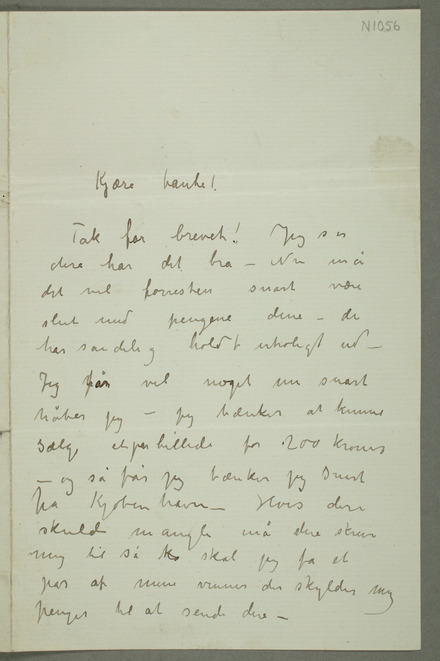 N1056
Kjære tante!
Tak for brevet! Jeg ser
dere har det bra – Nu må
det vel forresten snart være
slut med pengene dine – de
har sandelig holdt utroligt ud –
Jeg får vel noget nu snart
håber jeg – jeg tænker at kunne
sælge et par billede for 200 kroner
– og så får jeg tænker jeg snart
fra Kjøbenhavn – Hvis dere
skulde mangle må dere skrive
mig til så skal jeg få et
par af mine venner der skylder mig
penger til at sende dere –